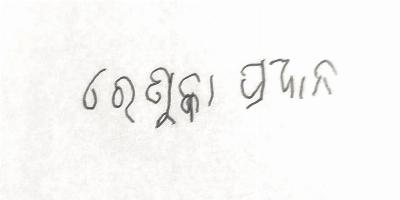 ରେଣୁକା ପ୍ରଧାନ